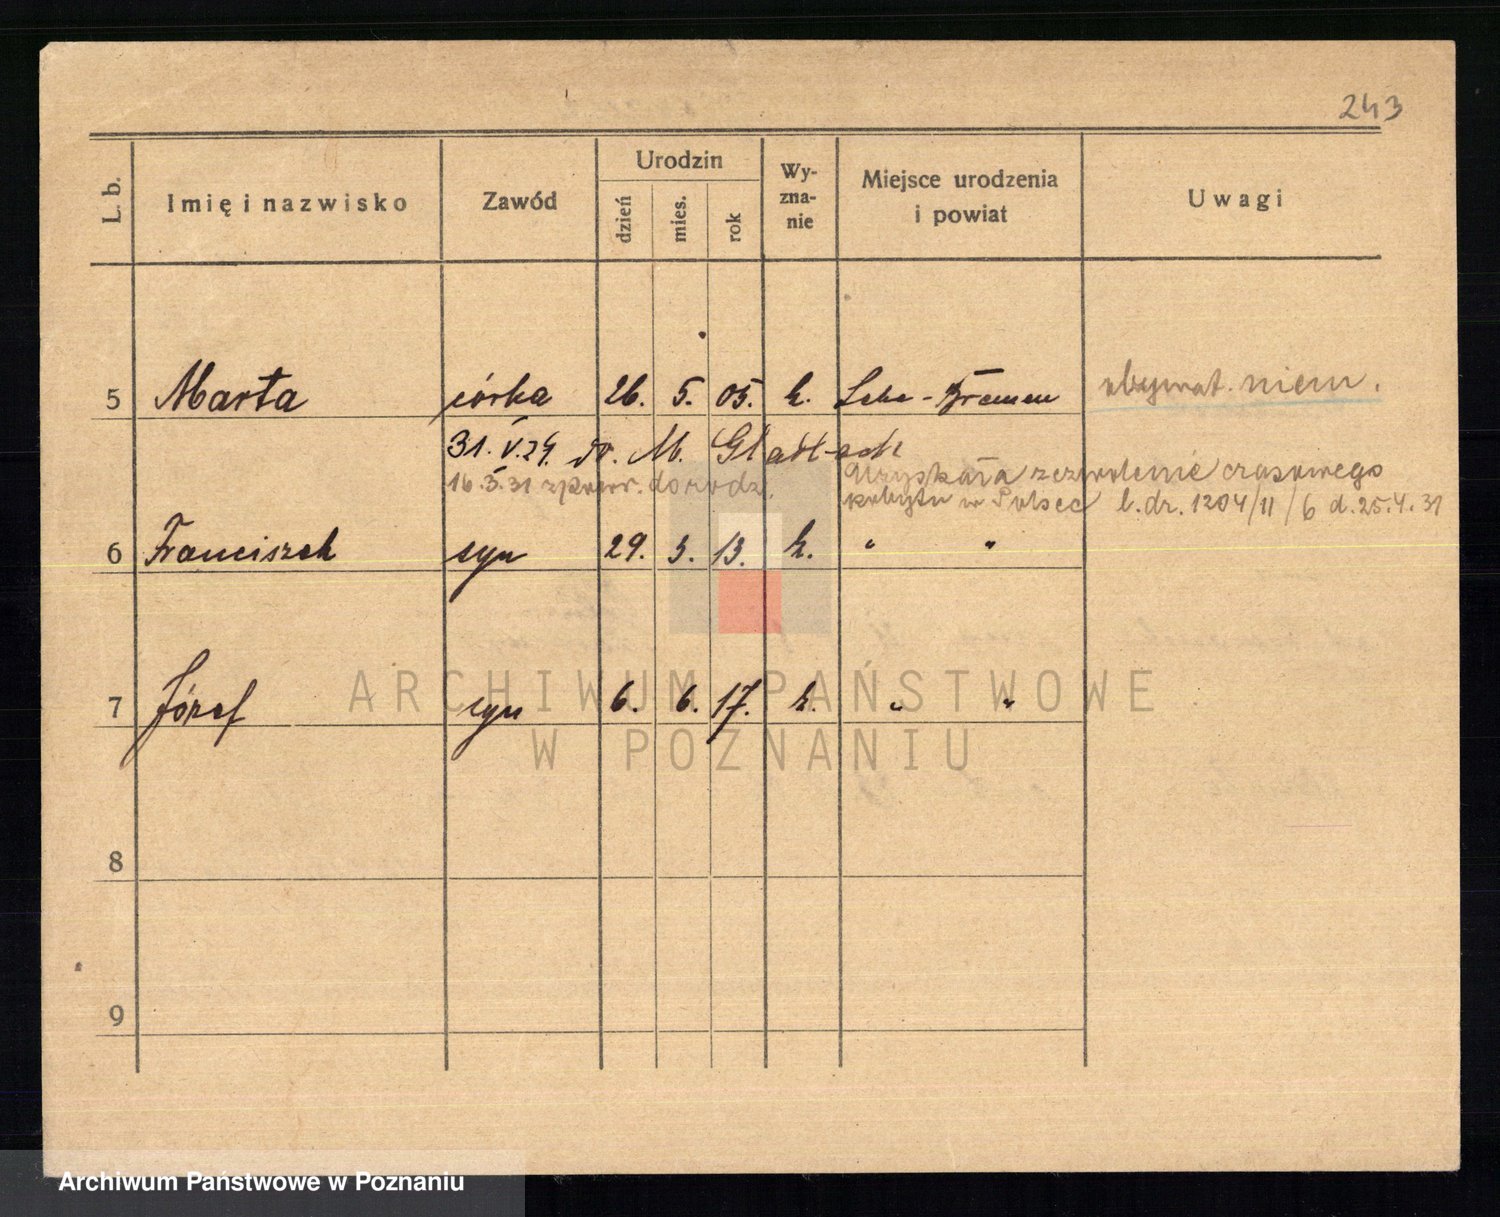 243
L. b.
Imię i nazwisko
Zawód
Urodzin
dzień
mies.
rok
Wy-
zna-
nie
Miejsce urodzenia
i powiat
Uwagi
5 Marta córka 26. 5. 05. k. Lehe - Bremen obywat. niem.
31. V. 24. do. M. Gladbach
16.3.31 zpowr. do rodz.
Uzyskała zezwolenie czasowego
pobytu w Polsce l. dz. 1204/II/6 d. 25.4.31
6 Franciszek syn 29. 3. 13. k. " "
7 Józef syn 6. 6. 17. k. " "
8
9
ARCHIWUM PAŃSTWOWE
W POZNANIU
Archiwum Państwowe w Poznaniu